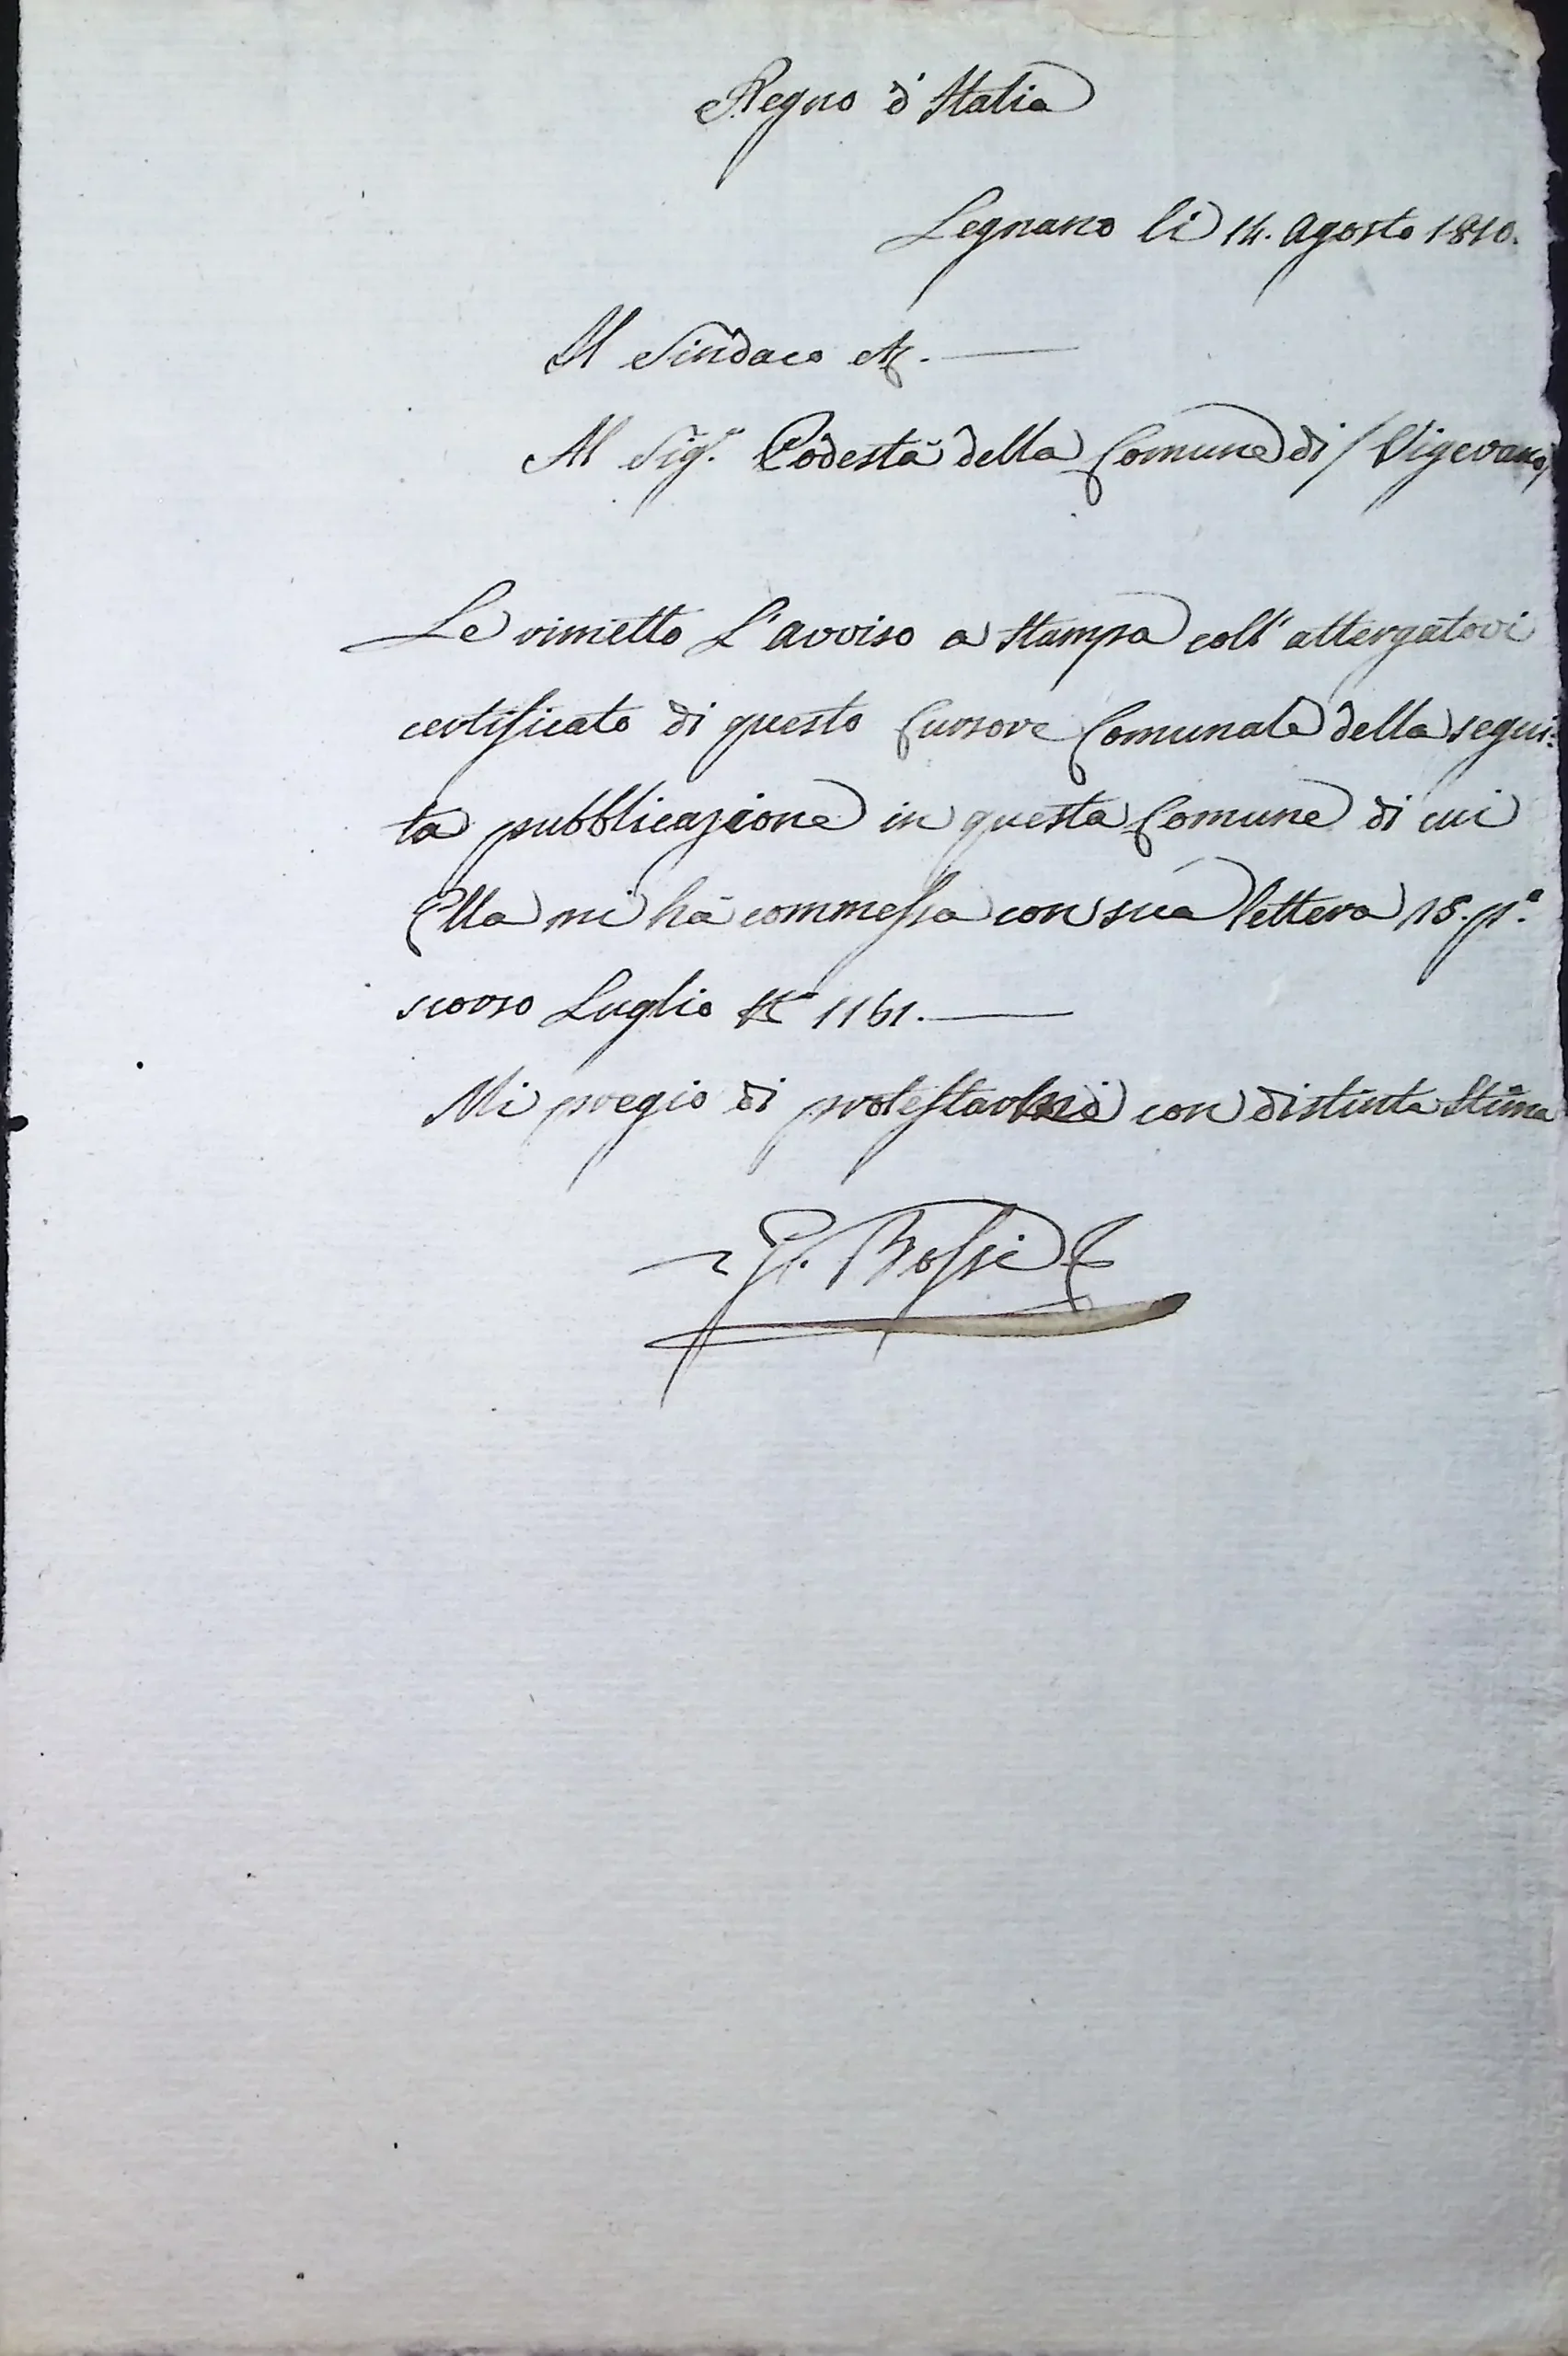 Regno d'Italia
Legnano li 14. Agosto 1810.
Il Sindaco etc. —
Al Sig.r Podestà della Comune di / Vigevano /
Le rimetto L'avviso a Stampa coll' attergatovi
certificato di questo Cursore Comunale della segui:
ta pubblicazione in questa Comune di cui
Ella mi hà commessa con sua lettera 18. p.o
scorso Luglio N.o 1161. —
Mi pregio di protestarle con distinta Stima
G. Bossi